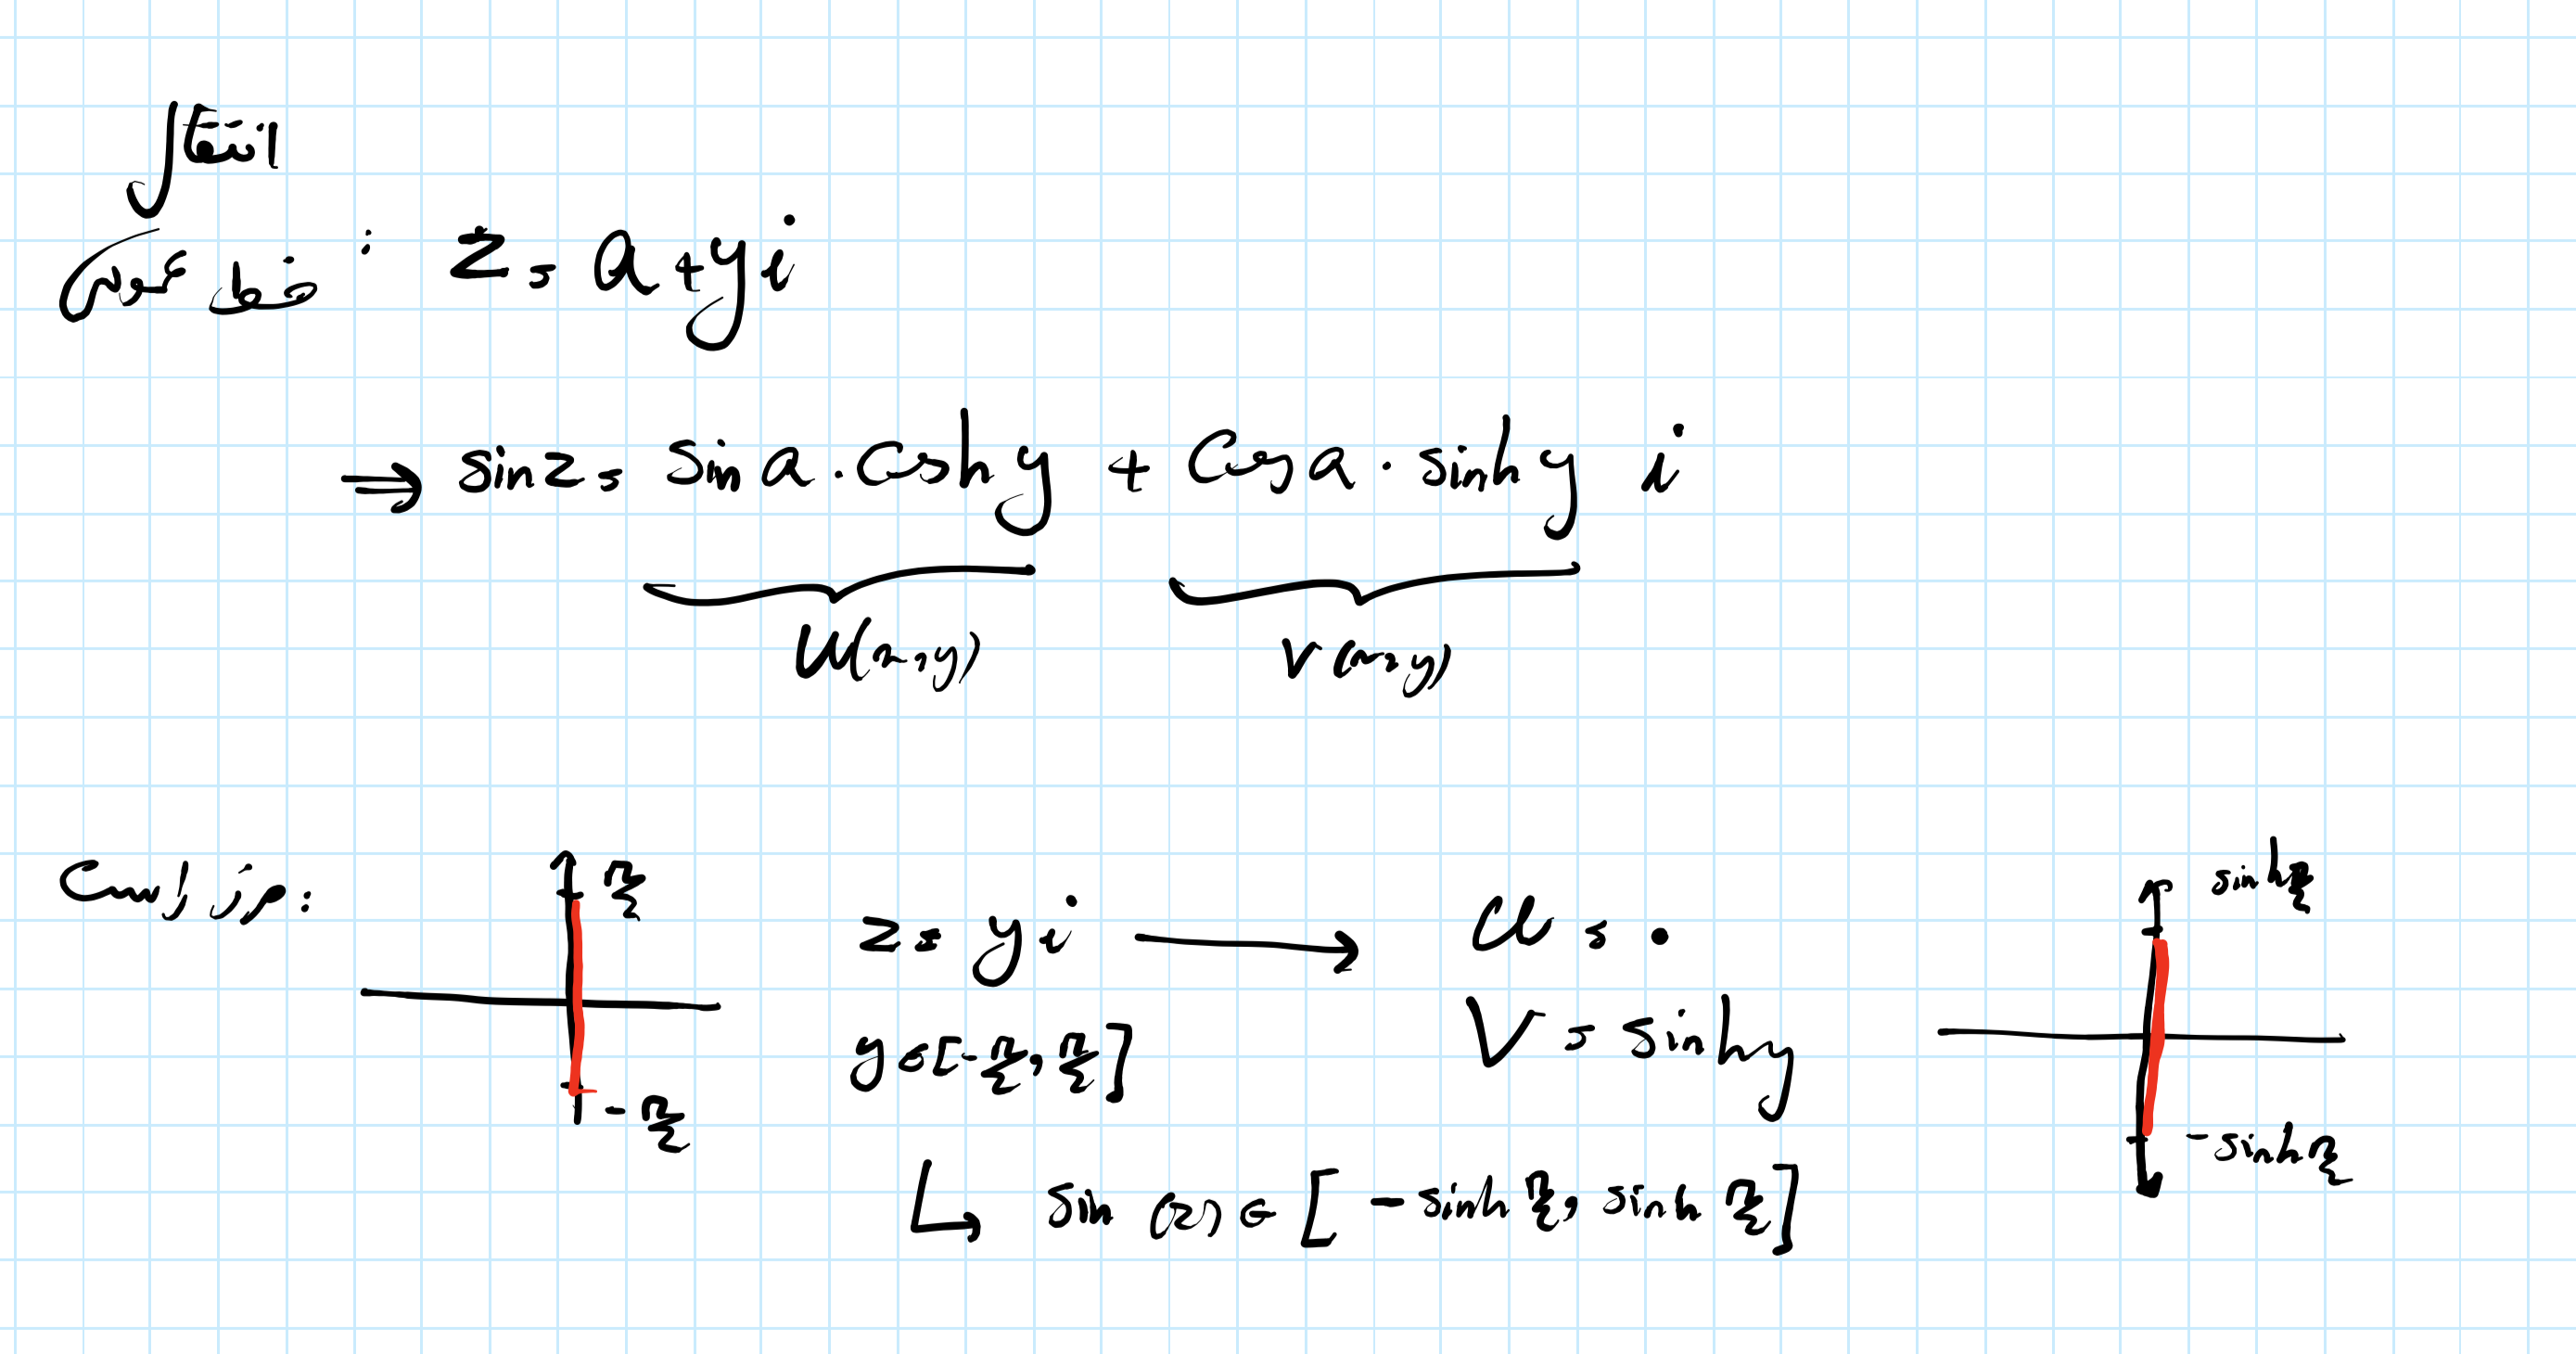 انتقال
خط عمودی : z = a + yi
⇒ sin z = sin a . cosh y + cos a . sinh y i
u(x,y) v(x,y)
مرز راست :
π/2
-π/2
z = yi ⟶ u = 0
y ∈ [-π/2, π/2]
v = sinh y
↳ sin(z) ∈ [-sinh π/2, sinh π/2]
sinh π/2
-sinh π/2